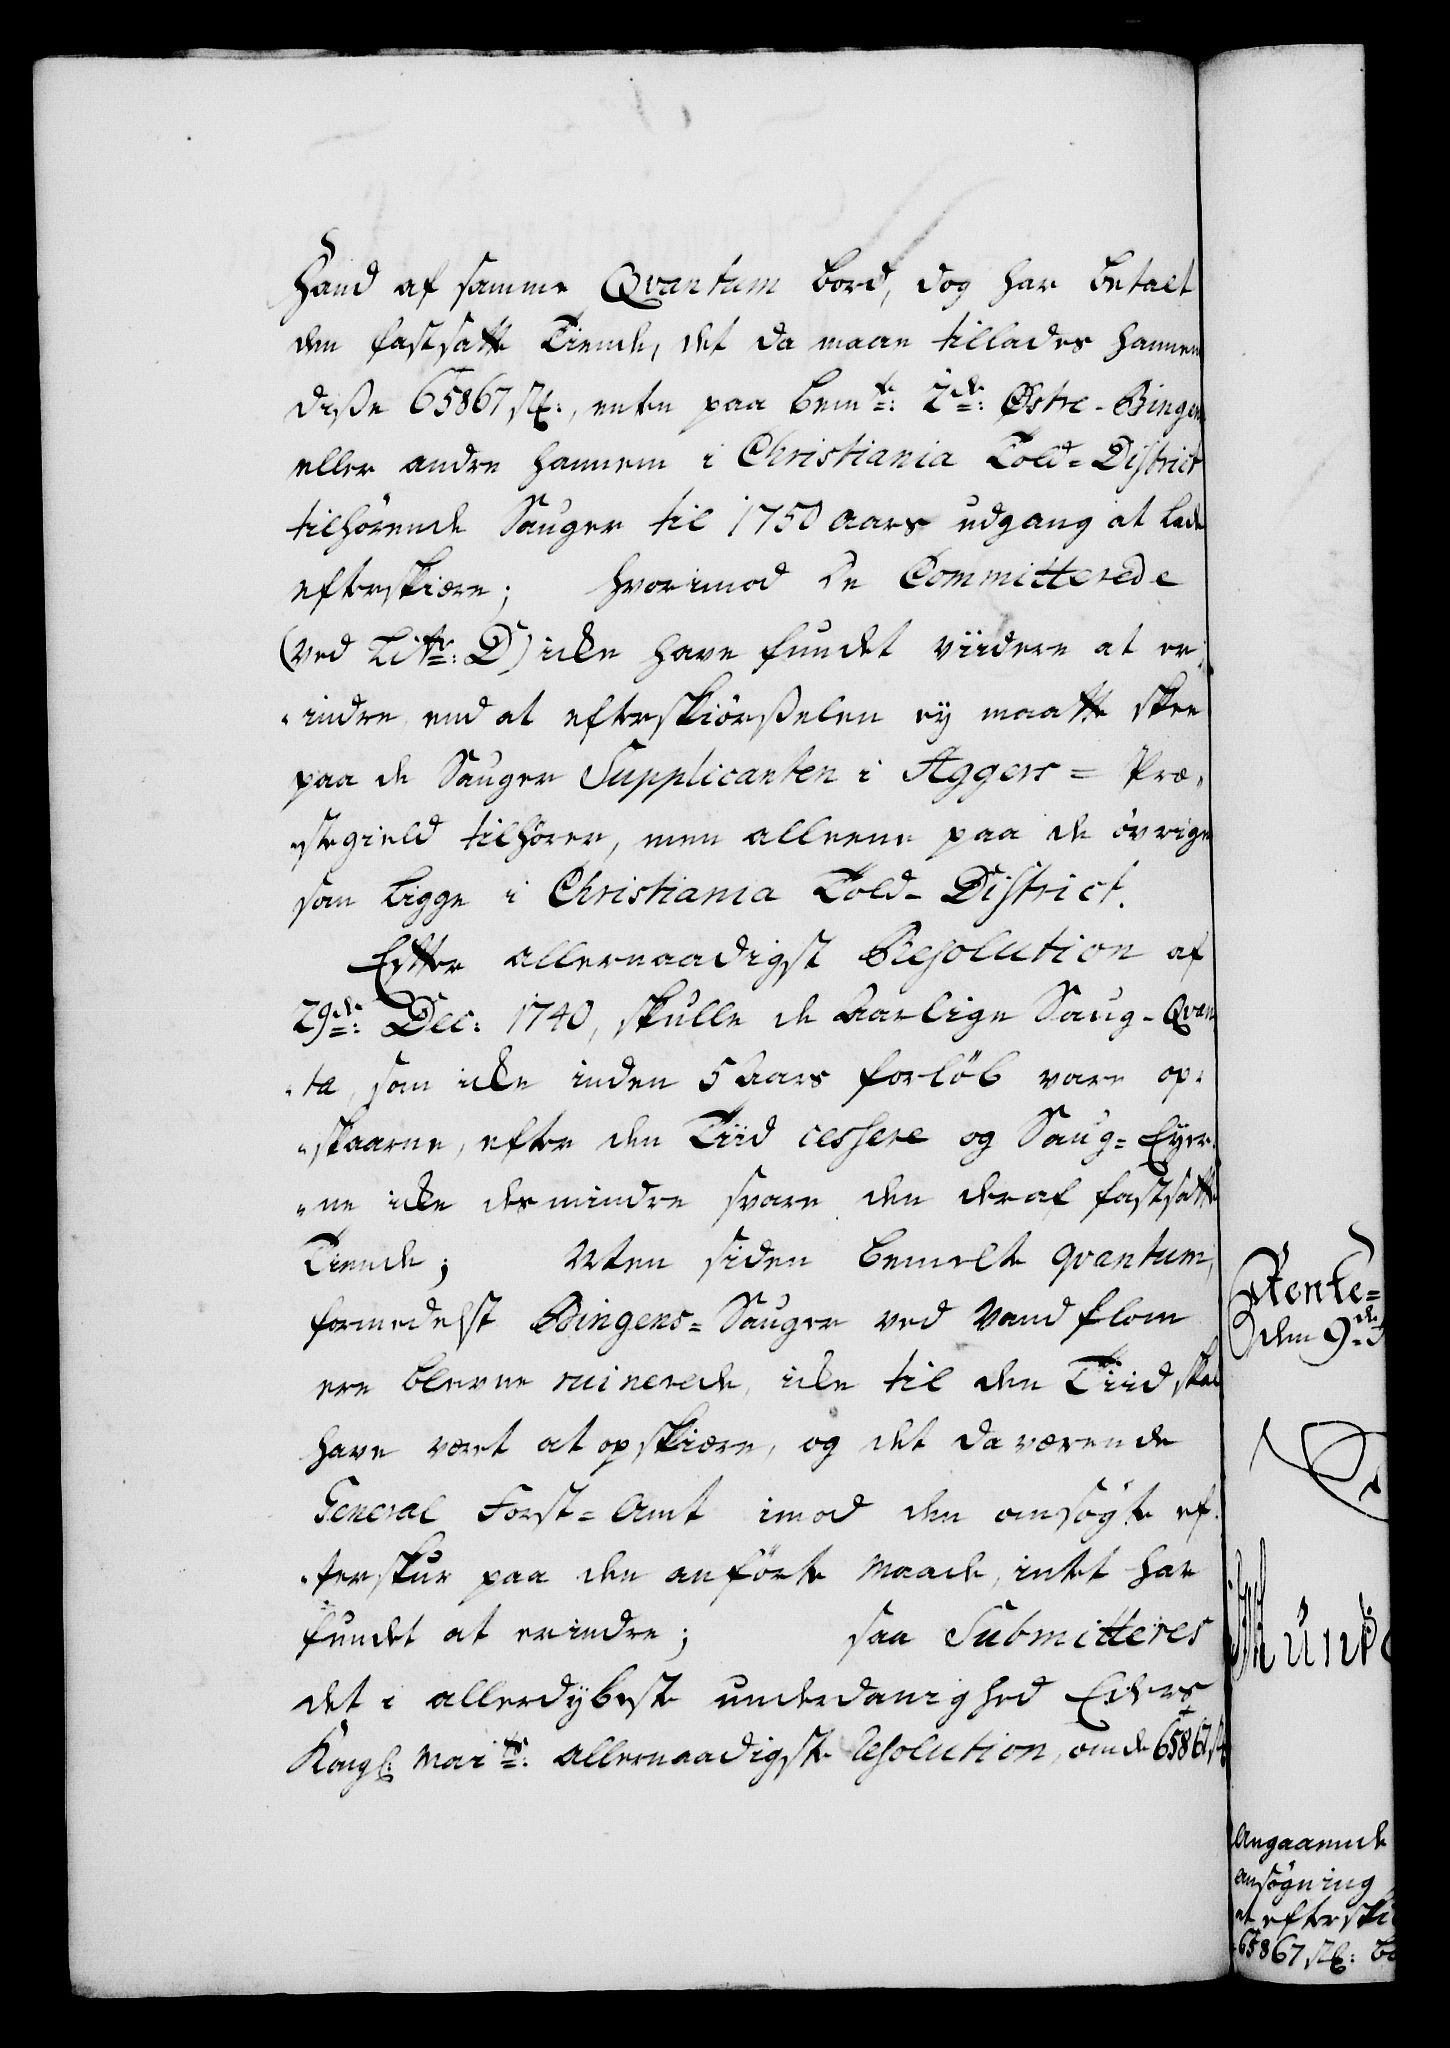 Hand af samme Qvantum bord, dog har betalt
den fastsatte Tiende, det da maae tillades hannem
diße 65867 st:, enten paa bemte: 2de: Østre-Bingen
eller andre hannem i Christiania Told=District
tilhörende Sauger til 1750 Aars udgang at lade
efterskiære; hvorimod de Committerede
(ved Litr: D) icke have fundet viidere at er,
„indre end at efterskiörßelen ey maatte skee
paa de Sauger Supplicanten i Aggers= Præ„
„stegield tilhörer, men alleene paa de övrige
som ligge i Christiania Told-District.
Efter allernaadigst Resolution af
29de: Dec: 1740, skulle de Aarlige Saug-Qvan
„ta, som icke inden 5 Aars forlöb vare op„
„skaarne, efter den Tiid cessere og Saug=Eyer„
„ne icke desmindre svare den deraf fastsatte
Tiende; Men siden bemelte qvantum,
formedelst Bingens=Sauger ved Vandflom
ere blevne ruinerede, icke til den Tiid skal
have været at opskiære, og det da værende
General Forst=Amt imod den ansögte ef„
„terskur paa den anförte Maade, intet har
fundet at erindre; saa Submitteres
det i allerdybeste underdanighed Eders
Kongl: Maits: allernaadigste Resolution, om de 65867 st
Rente=
den 9de
Angaaende
ansögning
at efterski
65867 st: Bo